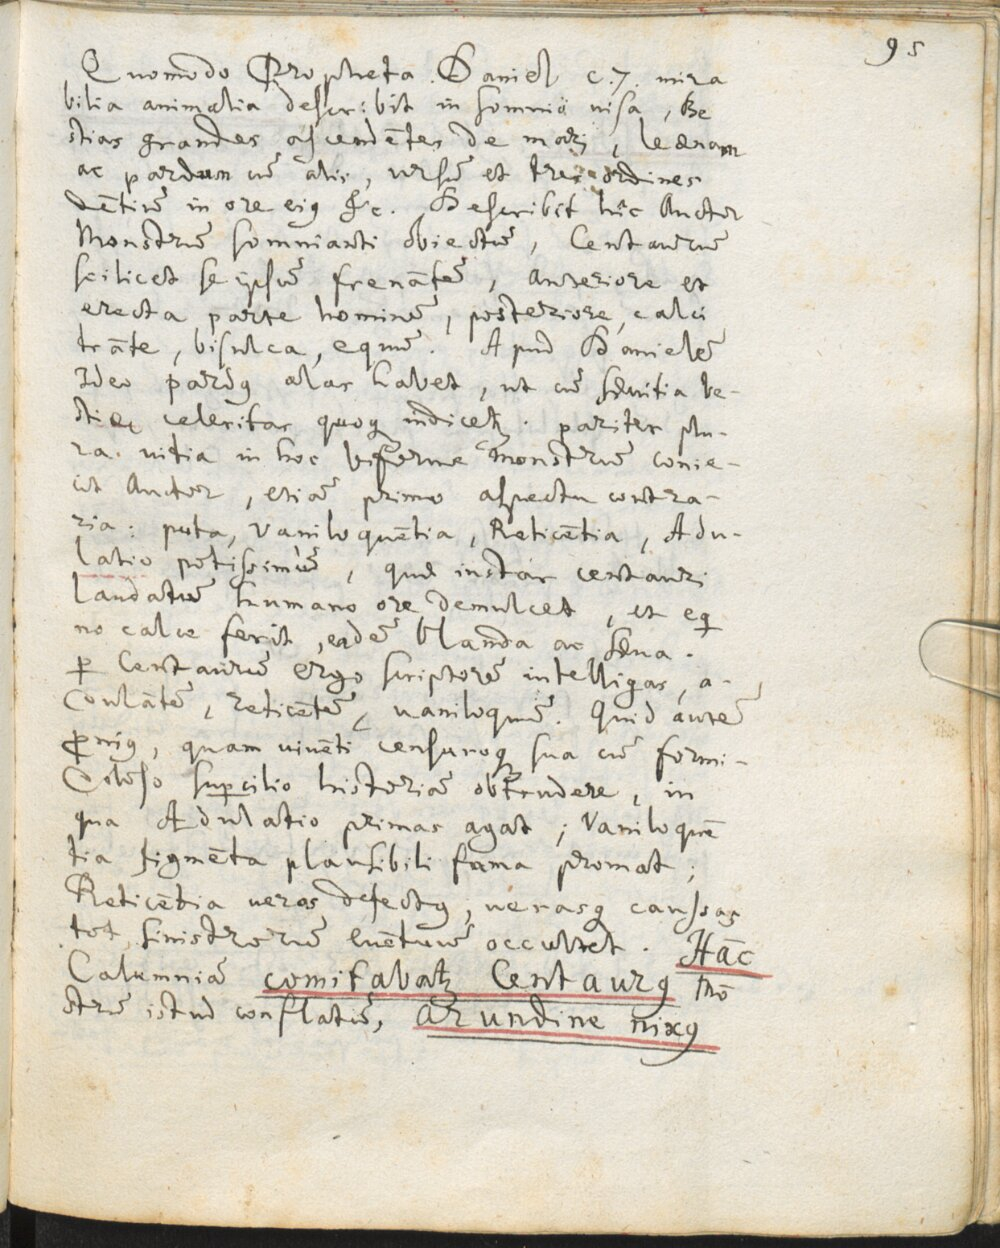 95
Quomodo Propheta Daniel c. 7. mira
bilia animalia describit in somniis visa, Be
stias grandes ascendētes de mari, leænam
ac pardum cū alis, ursū et tres ordines
dentiū in ore eiꝰ &c. Describit hîc Auctor
Monstrū somnianti obiectū, Centaurū
scilicet se ipsū frenātē, Anteriore et
erecta parte hominē, posteriore, calci
trāte, bisulca, equū. Apud Danielē
Ideo pardꝰ alas habet, ut cū sævitia be-
stiæ celeritas quoqꝫ indicetꝛ. pariter plu-
ra vitia in hoc biforme Monstrū conie-
cit Auctor, etiā primo aspectu contra-
ria: puta, Vaniloquētia, Reticētia, Adu-
latio potissimū, quæ instar centauri
laudatū humano ore demulcet, et eq̄
no calce ferit, eadē blanda ac sæva.
ꝑ Centaurū ergo scriptorē intelligas, a-
dulātē, reticētē, vaniloquū. Quid autē
ꝓniꝰ, quam viventi censuraqꝫ sua cū formi-
doloso suꝑcilio historiā obtrudere, in
qua Adulatio primas agat; Vaniloquē
tia figmēta plausibili fama promat;
Reticētia veros defectꝰ, verasqꝫ caussas
tot sinistrorū evētuū occultet. Hāc
Calumniā comitabatꝛ Centaurꝰ mō
strū istud conflatū, arundine nixꝰ